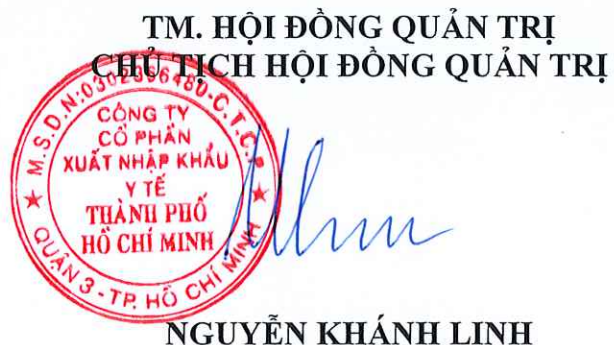 TM. HỘI ĐỒNG QUẢN TRỊ
CHỦ TỊCH HỘI ĐỒNG QUẢN TRỊ
M.S.D.N: C.T.C.P
CÔNG TY
CỔ PHẦN
XUẤT NHẬP KHẨU
Y TẾ
THÀNH PHỐ
HỒ CHÍ MINH
QUẬN 3 - TP. HỒ CHÍ MINH
NGUYỄN KHÁNH LINH